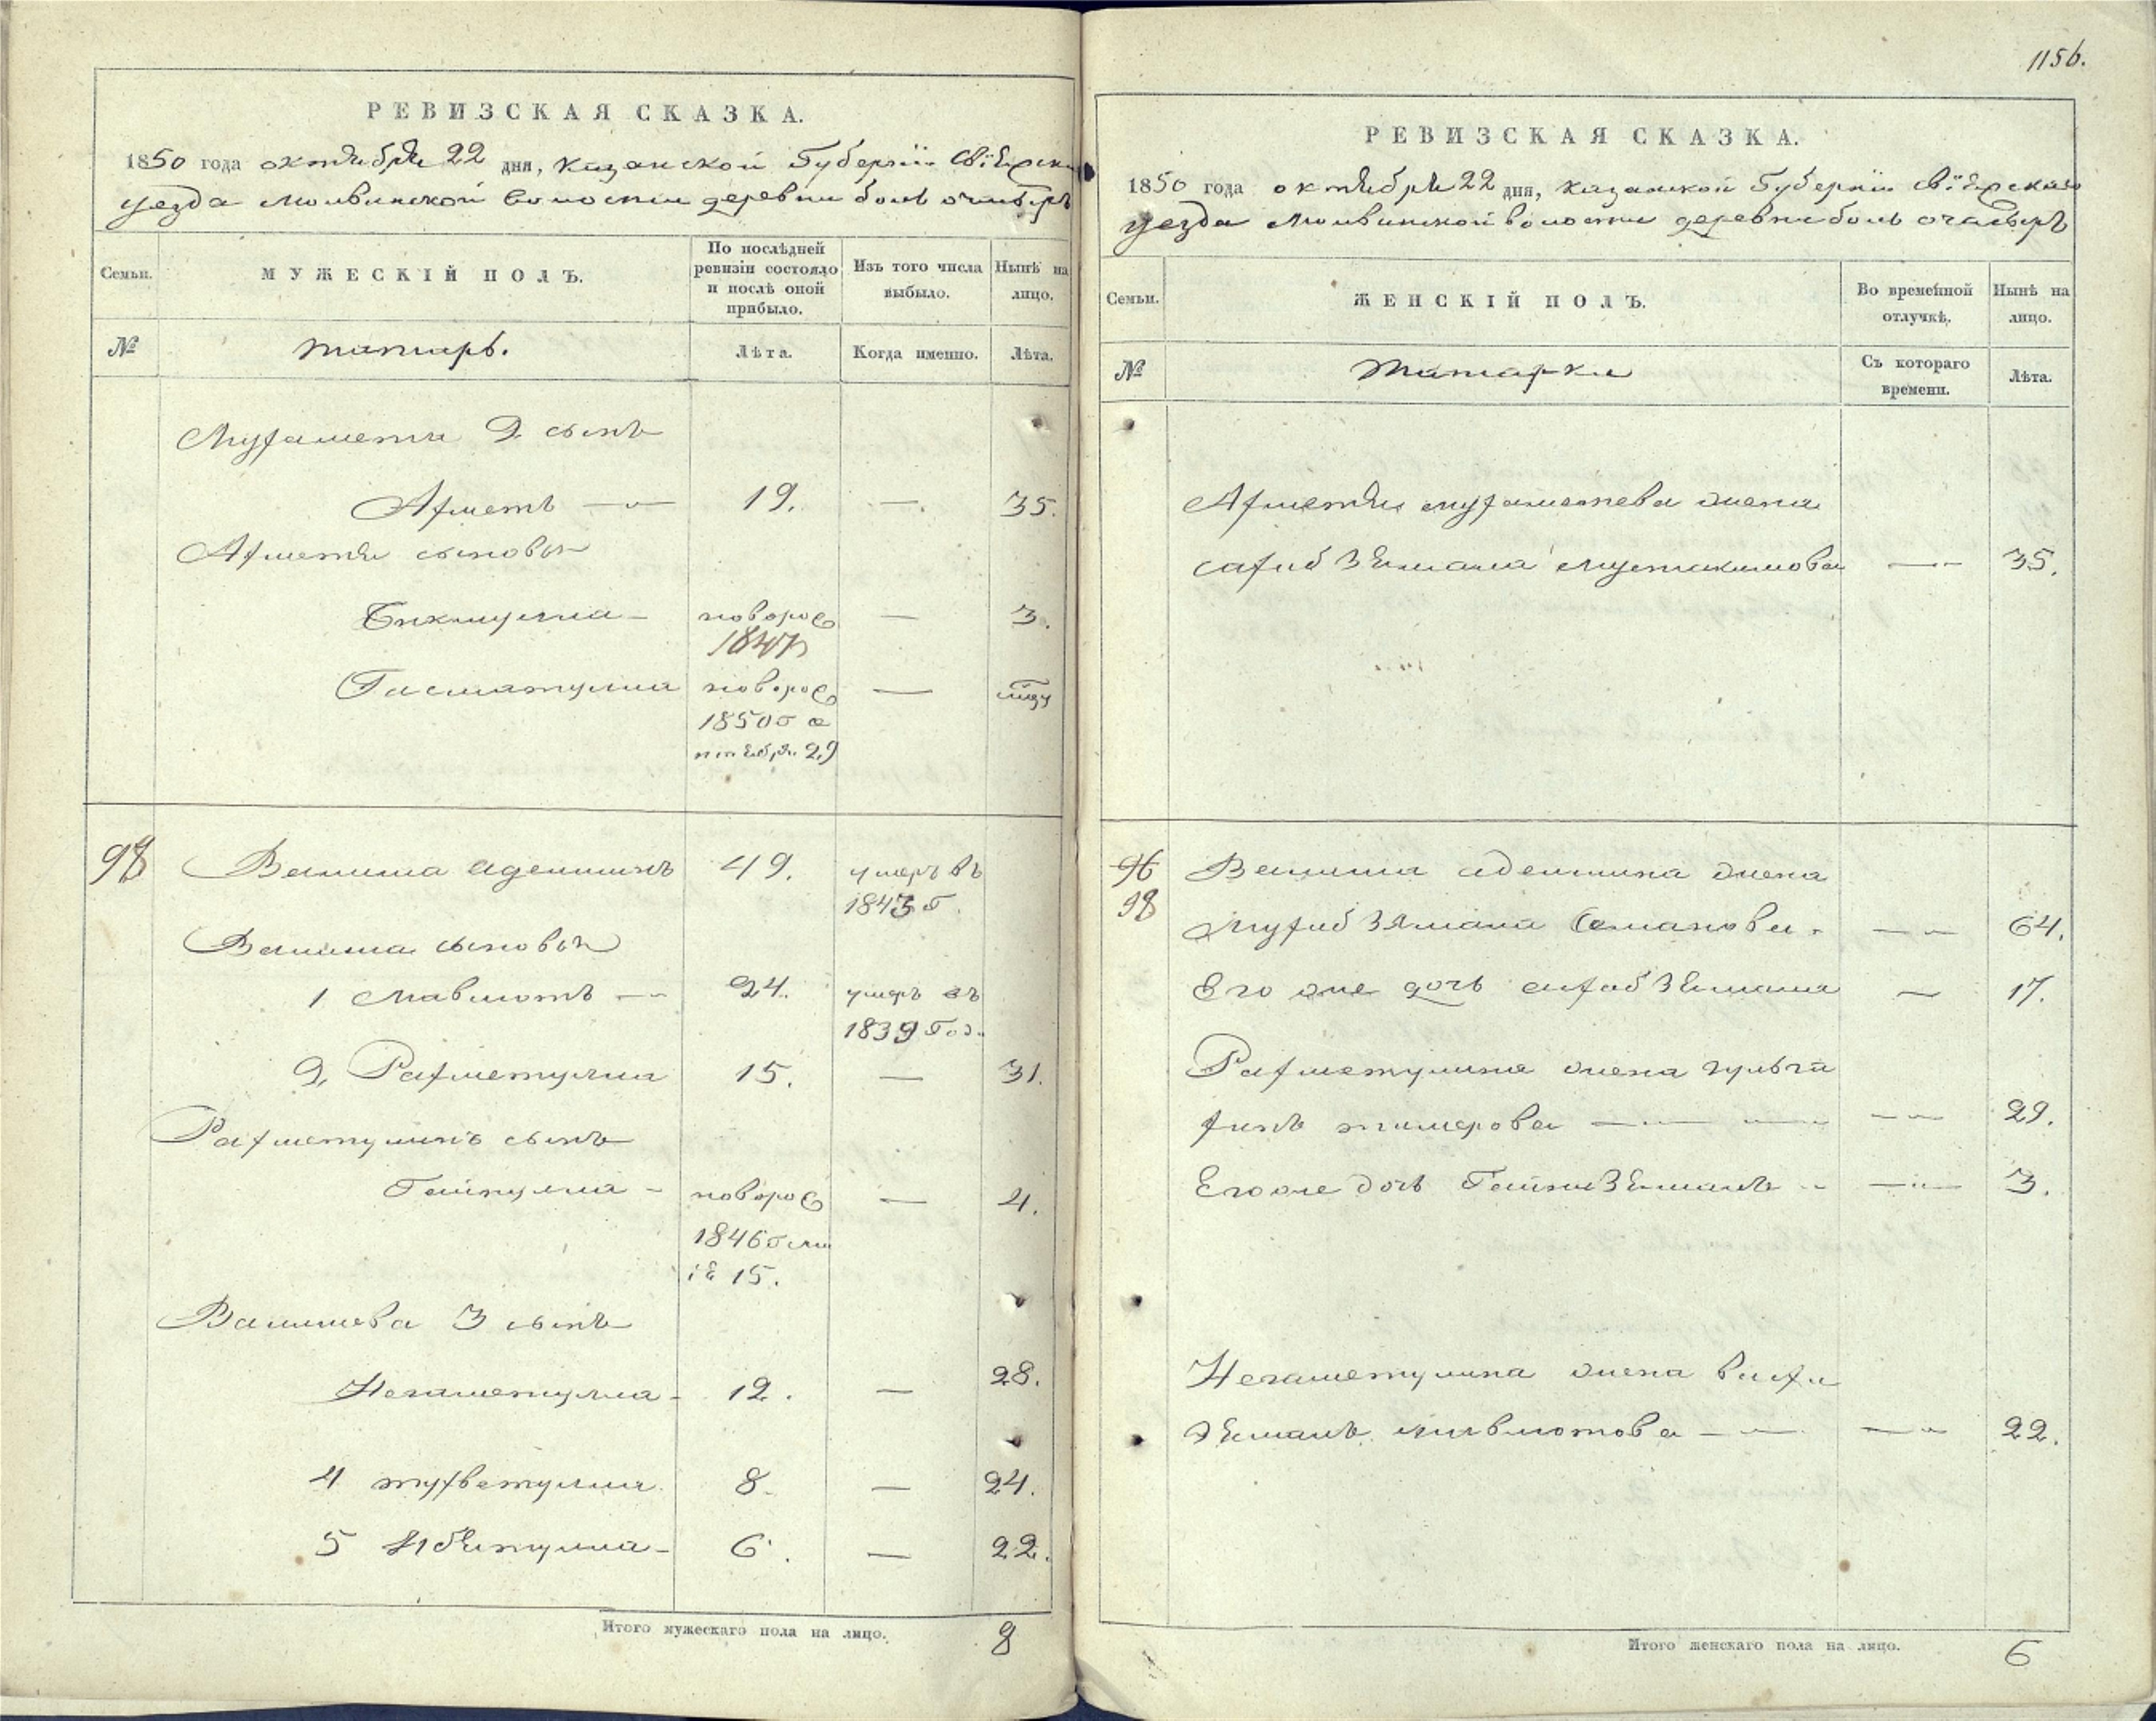 РЕВИЗСКАЯ СКАЗКА.
1850 года октября 22 дня, Казанской Губернiи Свiяжска
уезда Молвинской волости деревни боль очасырь
Семьи.
МУЖЕСКІЙ ПОЛЪ.
По послѣдней
ревизіи состояло
и послѣ оной
прибыло.
Изъ того числа
выбыло.
Нынѣ на
лицо.
№
татаръ.
Лѣта.
Когда именно.
Лѣта.
Мухаметя 2 сынъ
Ахметъ 19. — 35.
Ахметя сыновья
Бикмулла новорож — 3.
1847
Гисматулла новорож — мцу
1850 г се
птября 29
98 Валиша аделшинъ 49. умеръ въ
1843 г.
Валиша сыновья
1 Мавлютъ 24. умеръ въ
1839 год.
2 Рахметулла 15. — 31.
Рахметуллинъ сынъ
Гайнулла новорож — 4.
1846 г ма
iя 15.
Валишева 3 сынъ
Негаметулла 12. — 28.
4 тухветулла 8. — 24.
5 Ибятулла 6. — 22.
Итого мужескаго пола на лицо. 8
1156.
РЕВИЗСКАЯ СКАЗКА.
1850 года октября 22 дня, Казанской Губернiи Свiяжскаго
уезда Молвинской волости деревни боль очасырь
Семьи.
ЖЕНСКІЙ ПОЛЪ.
Во временной
отлучкѣ.
Нынѣ на
лицо.
№
татарки
Съ котораго
времени.
Лѣта.
Ахметя мухаметева жена
сахиб Зямала Мустакимова — 35.
96 Валиша аделшина жена
98 Мухиб Зямала Османова — 64.
Его же дочь сахиб Зямала — 17.
Рахметуллина жена гульги
хинъ тимерова — 29.
Его же дочь Гайни Зямалъ — 3.
Негаметулина жена вафи
Зямалъ мавлютова — 22.
Итого женскаго пола на лицо. 6